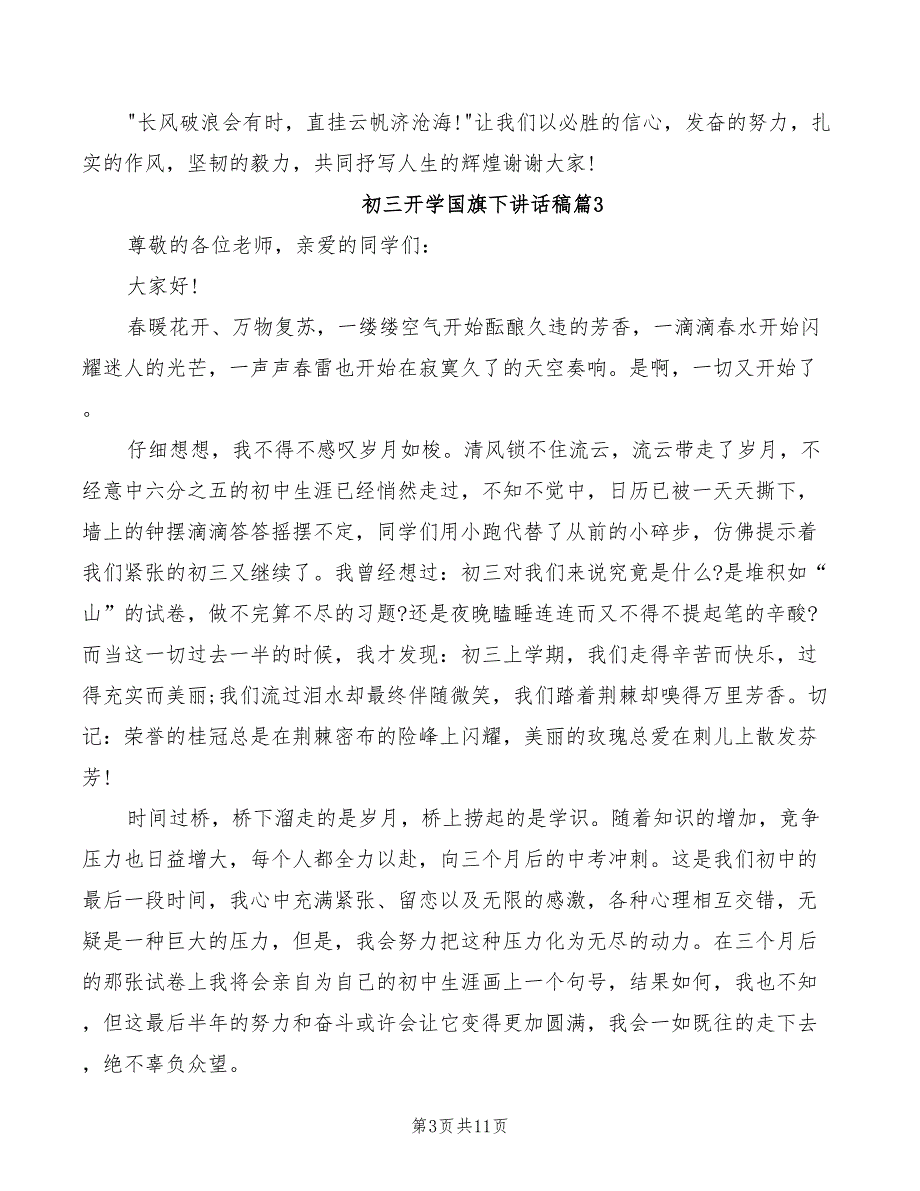 "长风破浪会有时，直挂云帆济沧海!"让我们以必胜的信心，发奋的努力，扎
实的作风，坚韧的毅力，共同抒写人生的辉煌谢谢大家!
初三开学国旗下讲话稿篇3
尊敬的各位老师，亲爱的同学们：
大家好!
春暖花开、万物复苏，一缕缕空气开始酝酿久违的芳香，一滴滴春水开始闪
耀迷人的光芒，一声声春雷也开始在寂寞久了的天空奏响。是啊，一切又开始了
。
仔细想想，我不得不感叹岁月如梭。清风锁不住流云，流云带走了岁月，不
经意中六分之五的初中生涯已经悄然走过，不知不觉中，日历已被一天天撕下，
墙上的钟摆滴滴答答摇摆不定，同学们用小跑代替了从前的小碎步，仿佛提示着
我们紧张的初三又继续了。我曾经想过：初三对我们来说究竟是什么?是堆积如“
山”的试卷，做不完算不尽的习题?还是夜晚瞌睡连连而又不得不提起笔的辛酸?
而当这一切过去一半的时候，我才发现：初三上学期，我们走得辛苦而快乐，过
得充实而美丽;我们流过泪水却最终伴随微笑，我们踏着荆棘却嗅得万里芳香。切
记：荣誉的桂冠总是在荆棘密布的险峰上闪耀，美丽的玫瑰总爱在刺儿上散发芬
芳!
时间过桥，桥下溜走的是岁月，桥上捞起的是学识。随着知识的增加，竞争
压力也日益增大，每个人都全力以赴，向三个月后的中考冲刺。这是我们初中的
最后一段时间，我心中充满紧张、留恋以及无限的感激，各种心理相互交错，无
疑是一种巨大的压力，但是，我会努力把这种压力化为无尽的动力。在三个月后
的那张试卷上我将会亲自为自己的初中生涯画上一个句号，结果如何，我也不知
，但这最后半年的努力和奋斗或许会让它变得更加圆满，我会一如既往的走下去
，绝不辜负众望。
第3页共11页